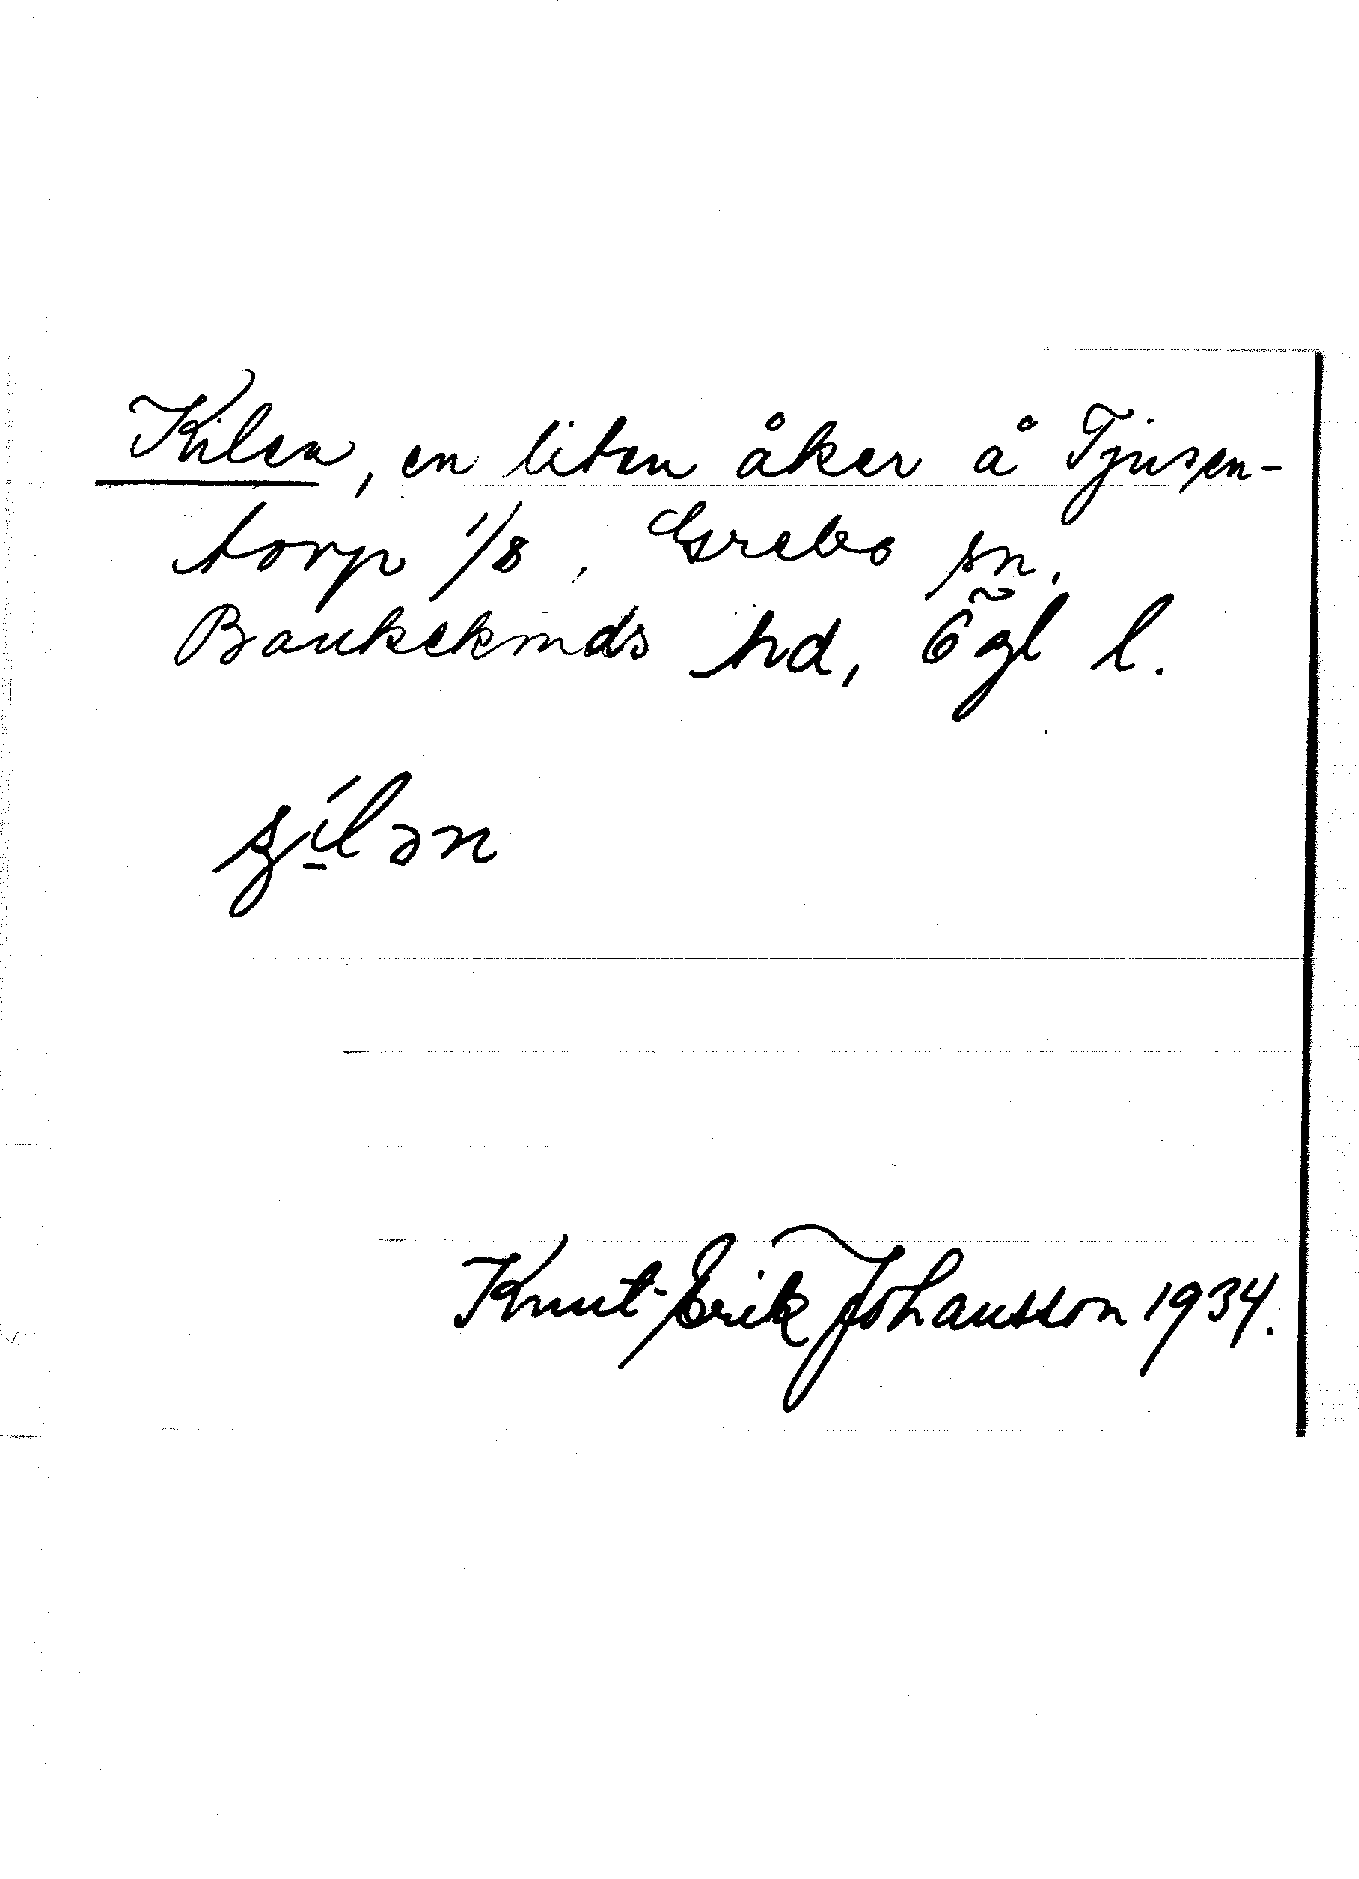 Kilen, en liten åker å Tjusen-
torp 1/8. Grebo sn.
Bankekinds hd, Ögl l.
Knut-Erik Johansson 1934.